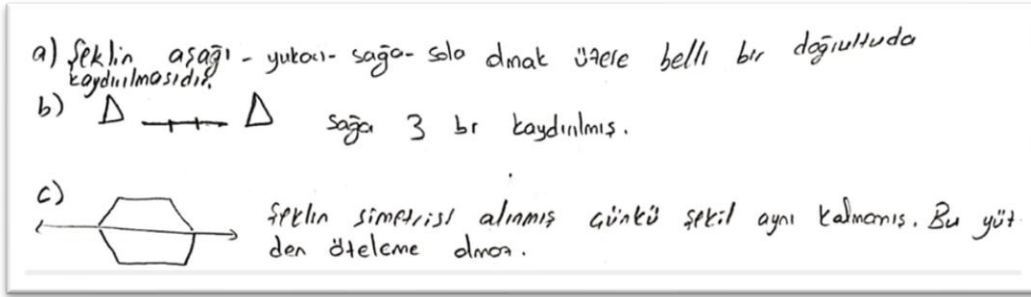 a) Şeklin aşağı - yukarı - sağa - sola olmak üzere belli bir doğrultuda
kaydırılmasıdır.
b) sağa 3 br kaydırılmış.
c) Şeklin simetrisi alınmış çünkü şekil aynı kalmamış. Bu yüz-
den öteleme olmaz.